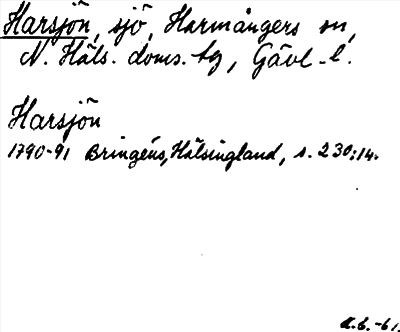 Harsjön, sjö, Harmångers sn,
N. Häls. doms. tg, Gävl. l.
Harsjön
1790-91 Bringéus, Hälsingland, s. 230:14.